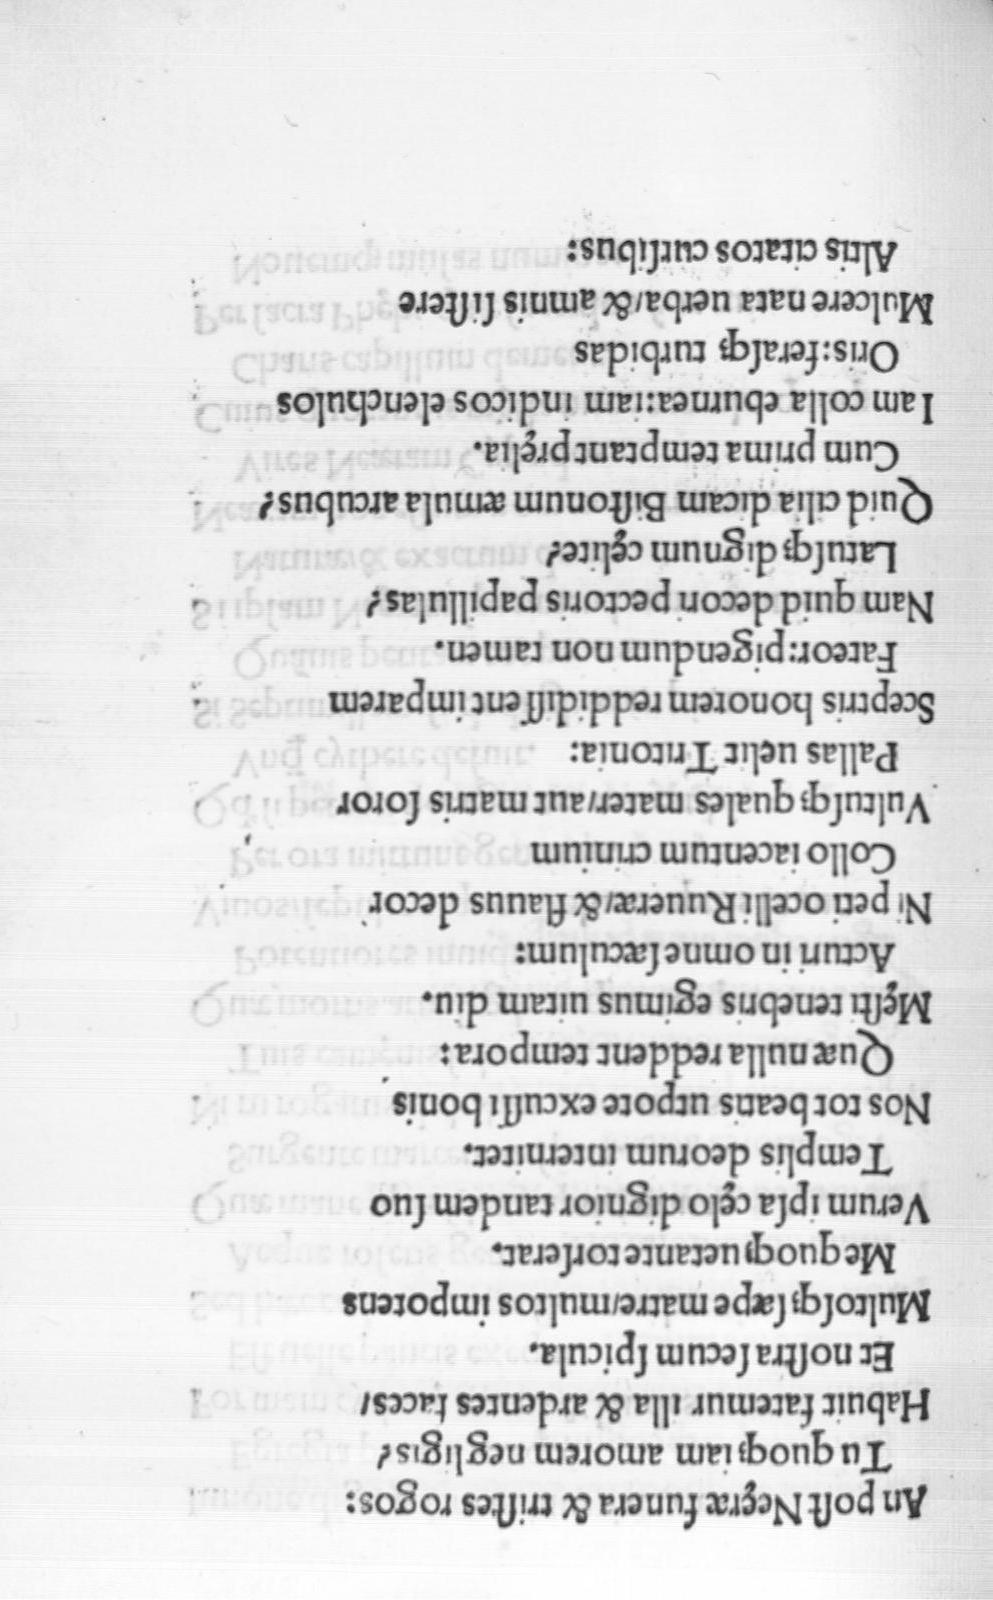 An post Neęræ funera & tristes rogos:
Tu quoq; iam amorem negligis?
Habuit fatemur illa & ardentes faces/
Et nostra secum spicula.
Multosq; sæpe matre/multos impotens
Me quoq; uetante torserat.
Verum ipsa cęlo dignior tandem suo
Templis deorum intermitet.
Nos tot beatis utpote excussi bonis
Quæ nulla reddent tempora:
Męsti tenebris egimus uitam diu.
Actun in omne sæculum:
Ni peti ocelli Rnueræ/& flauus decor
Collo iacentum crinium
Vultusq; quales mater/aut matris soror
Pallas uelit Tritonia:
Sceptris honorem reddidissent imparem
Fateor: pigendum non tamen.
Nam quid decori pectoris papillulas?
Latusq; dignum cęlite?
Quid cilia dicam Bistonum æmula arcubus?
Cum prima temptant pręlia.
Iam colla eburnea: iam indicos elenchulos
Oris: ferasq; turbidas
Mulcere nata uerba/& amnis sistere
Altis citatos cursibus: